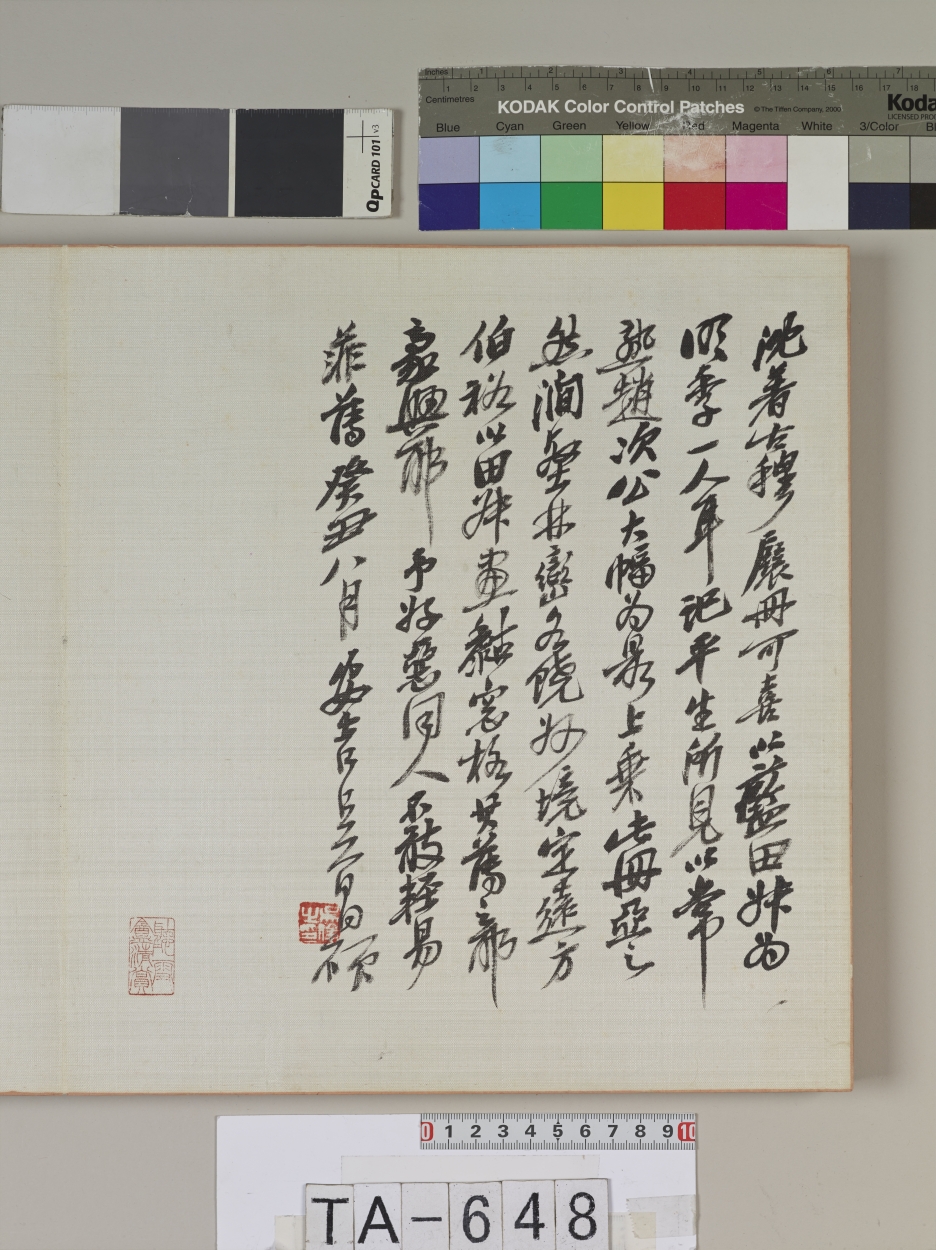 Inches 1 2 3 4 5 6 7
Centimetres 1 2 3 4 5 6 7 8 9 10 11 12 13 14 15 16 17 18
KODAK Color Control Patches © The Tiffen Company, 2000 Koda
LICENSED PROD
Blue Cyan Green Yellow Red Magenta White 3/Color Bl
QPCARD 101 v3
沈着古穆展冊可喜以藍田叔為
明季一人耳記平生所見以常
熟趙次公大幅為最上乘此冊亞之
然澗壑林巒多饒妙境定遠方
伯裕以田叔畫黏窓格
豪興耶予好惡同人不敢輕易
菲薄癸丑八月安吉吳昌碩
0 1 2 3 4 5 6 7 8 9 10
TA-648